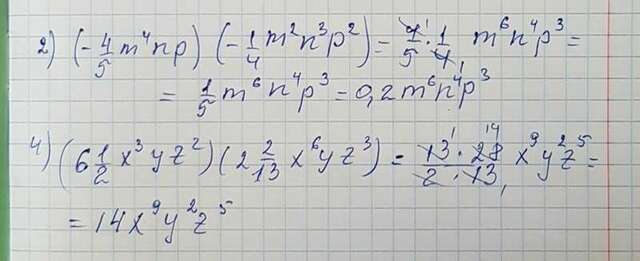 2) (-4/5 m⁴np) (-1/4 m²n³p²) = 4/5 · 1/4 m⁶n⁴p³ =
= 1/5 m⁶n⁴p³ = 0,2m⁶n⁴p³
4) (6 1/2 x³yz²)(2 2/13 x⁶yz³) = 13 · 28/2 · 13 x⁹y²z⁵ =
= 14x⁹y²z⁵